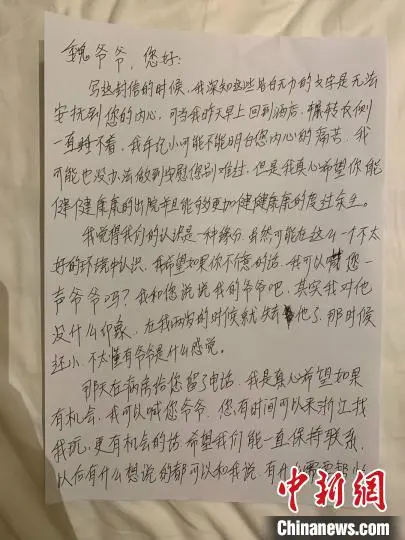 魏爷爷，您好：
写这封信的时候，我深知这些苍白无力的文字是无法
安抚到您的内心，可当我昨天早上回到酒店，辗转反侧
一直睡不着，我年纪小可能不能明白您内心的痛苦，我
可能也没办法做到安慰您别难过，但是我真心希望你能
健健康康的出院并且能够更加健健康康的度过余生。
我觉得我们的认识是一种缘分，虽然可能在这么一个不太
好的环境中认识，我希望如果你不介意的话，我可以喊您一
声爷爷吗？我和您说说我的爷爷吧，其实我对他
没什么印象，在我两岁的时候就失去他了，那时候
还小，不太懂有爷爷是什么感觉。
那天在病房给您留了电话，我是真心希望如果
有机会，我可以喊您爷爷，您有时间可以来浙江找
我玩，更有机会的话希望我们能一直保持联系，
以后有什么想说的都可以和我说，有什么需要帮
中新网
www.chinanews.com